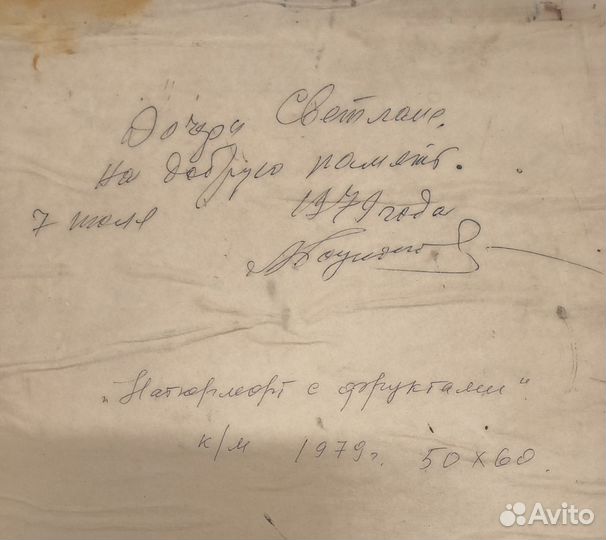 Дочери Светлане.
На добрую память.
7 июля 1979 года
„Натюрморт с фруктами".
к/м 1979г. 50х60.
Avito